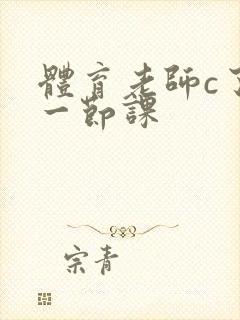 體育老師c了
一節課
宗青